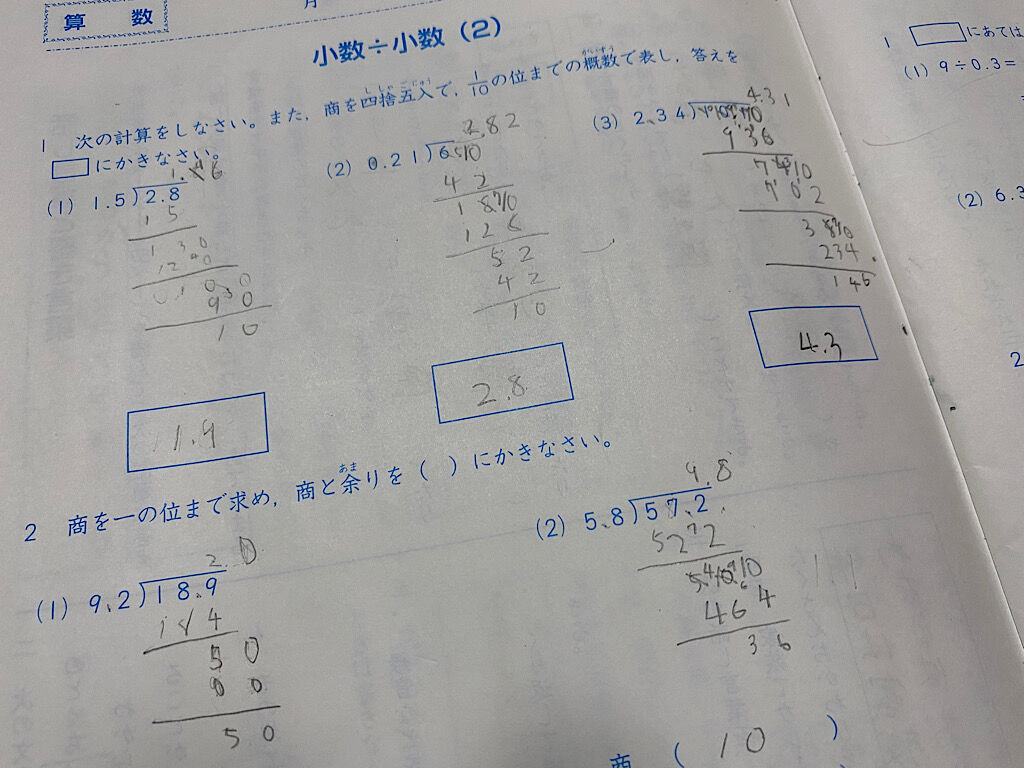 算 数
月
小数÷小数（2）
1 次の計算をしなさい。また，商を四捨五入で，1/10の位までの概数で表し，答えを
□にかきなさい。
(1) 1.5)2.8
15
10
1.9
(2) 0.21)
2.82
42
126
52
42
10
2.8
(3) 2.34)
4.31
936
702
234
146
4.3
2 商を一の位まで求め，商と余りを（ ）にかきなさい。
(1) 9.2)18.9
2.0
184
50
00
50
(2) 5.8)57.2
9.8
522
464
36
商 （ 10 ）
1 □にあては
(1) 9÷0.3=
(2) 6.3
2